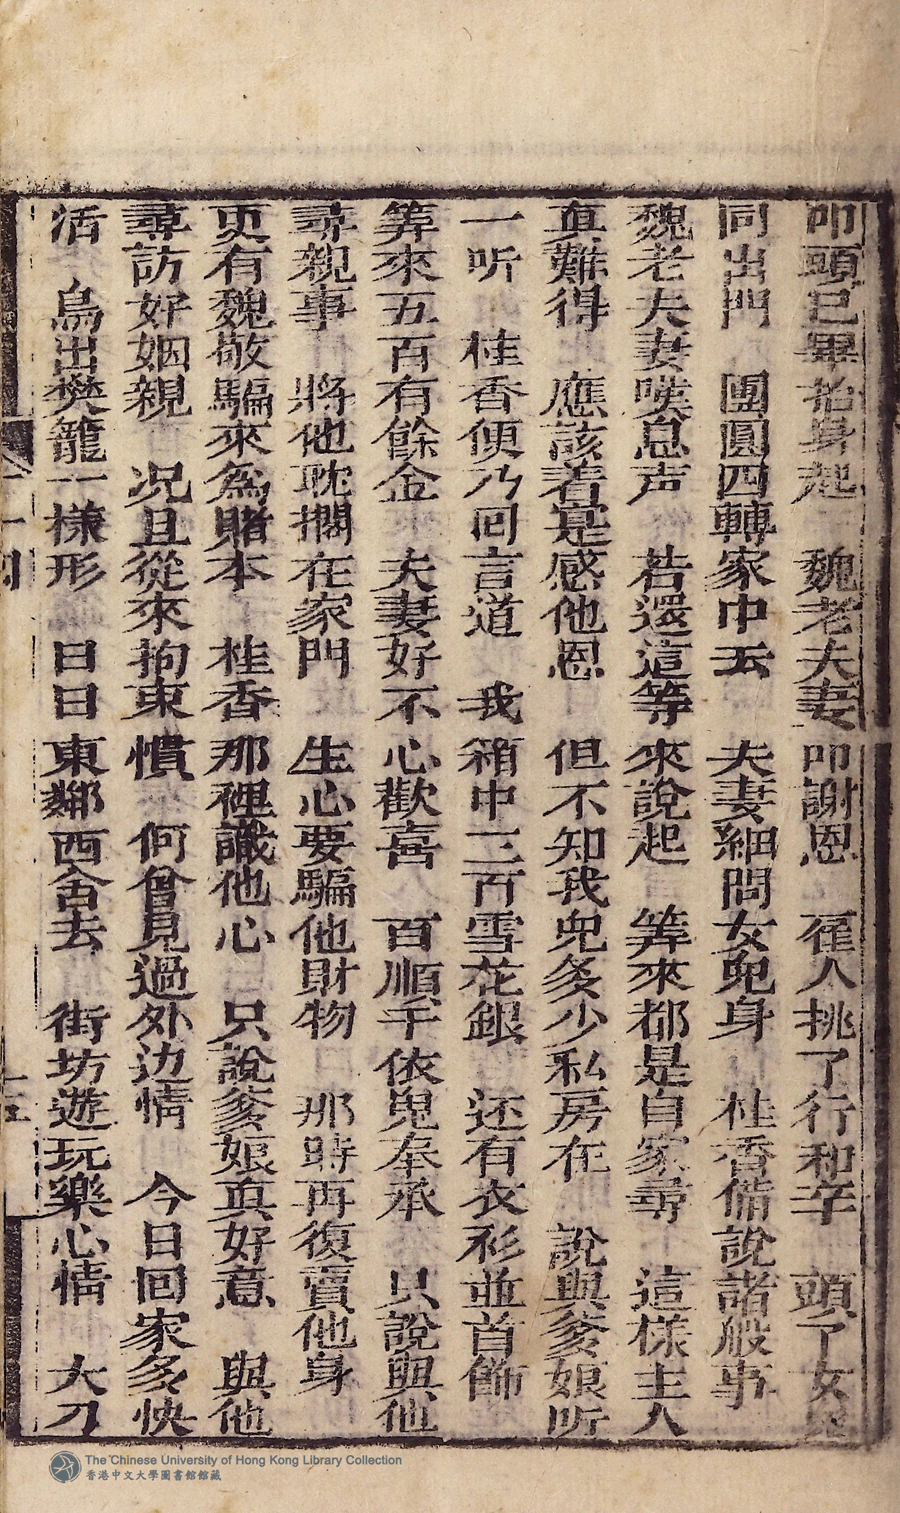 叩頭已畢抬身起　魏老夫妻叩謝恩　雇人挑了行和李　頭了女兒
同出門　團圓四轉家中云　夫妻細問女兒身　桂香備說諸般事
魏老夫妻嘆息声　若還這等來說起　筭來都是自家尋　這樣主人
真難得　應該着寔感他恩　但不知我兒多少私房在　說與爹娘听
一听　桂香便乃回言道　我箱中三百雪花銀　还有衣衫並首飾
筭來五百有餘金　夫妻好不心歡喜　百順千依兒奉承　只說與他
尋親事　將他耽擱在家門　生心要騙他財物　那時再復賣他身
更有魏敬騙來為賭本　桂香那裡識他心　只說爹娘真好意　與他
尋訪好姻親　况且從來拘束慣　何曾見過外边情　今日回家多快
活　鳥出樊籠一樣形　日日東鄰西舍去　街坊遊玩樂心情　大刀
The Chinese University of Hong Kong Library Collection
香港中文大學圖書館館藏